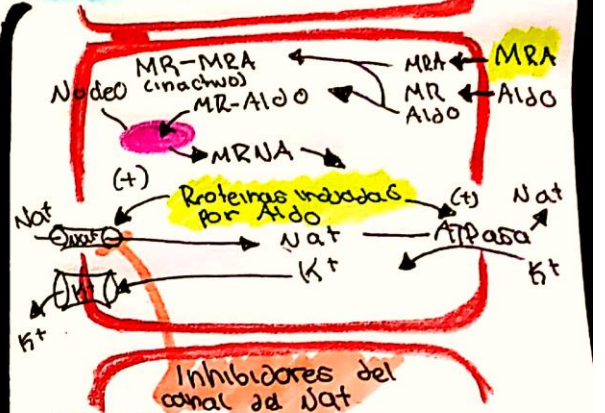 MR-MRA
(inactivo)
MRA
MRA
Nucleo
MR-Aldo
MR
Aldo
Aldo
MRNA
(+)
Proteinas inducidas
por Aldo
(+)
Na+
Na+
Na+
Na+
ATPasa
K+
K+
K+
K+
Inhibidores del
canal de Na+